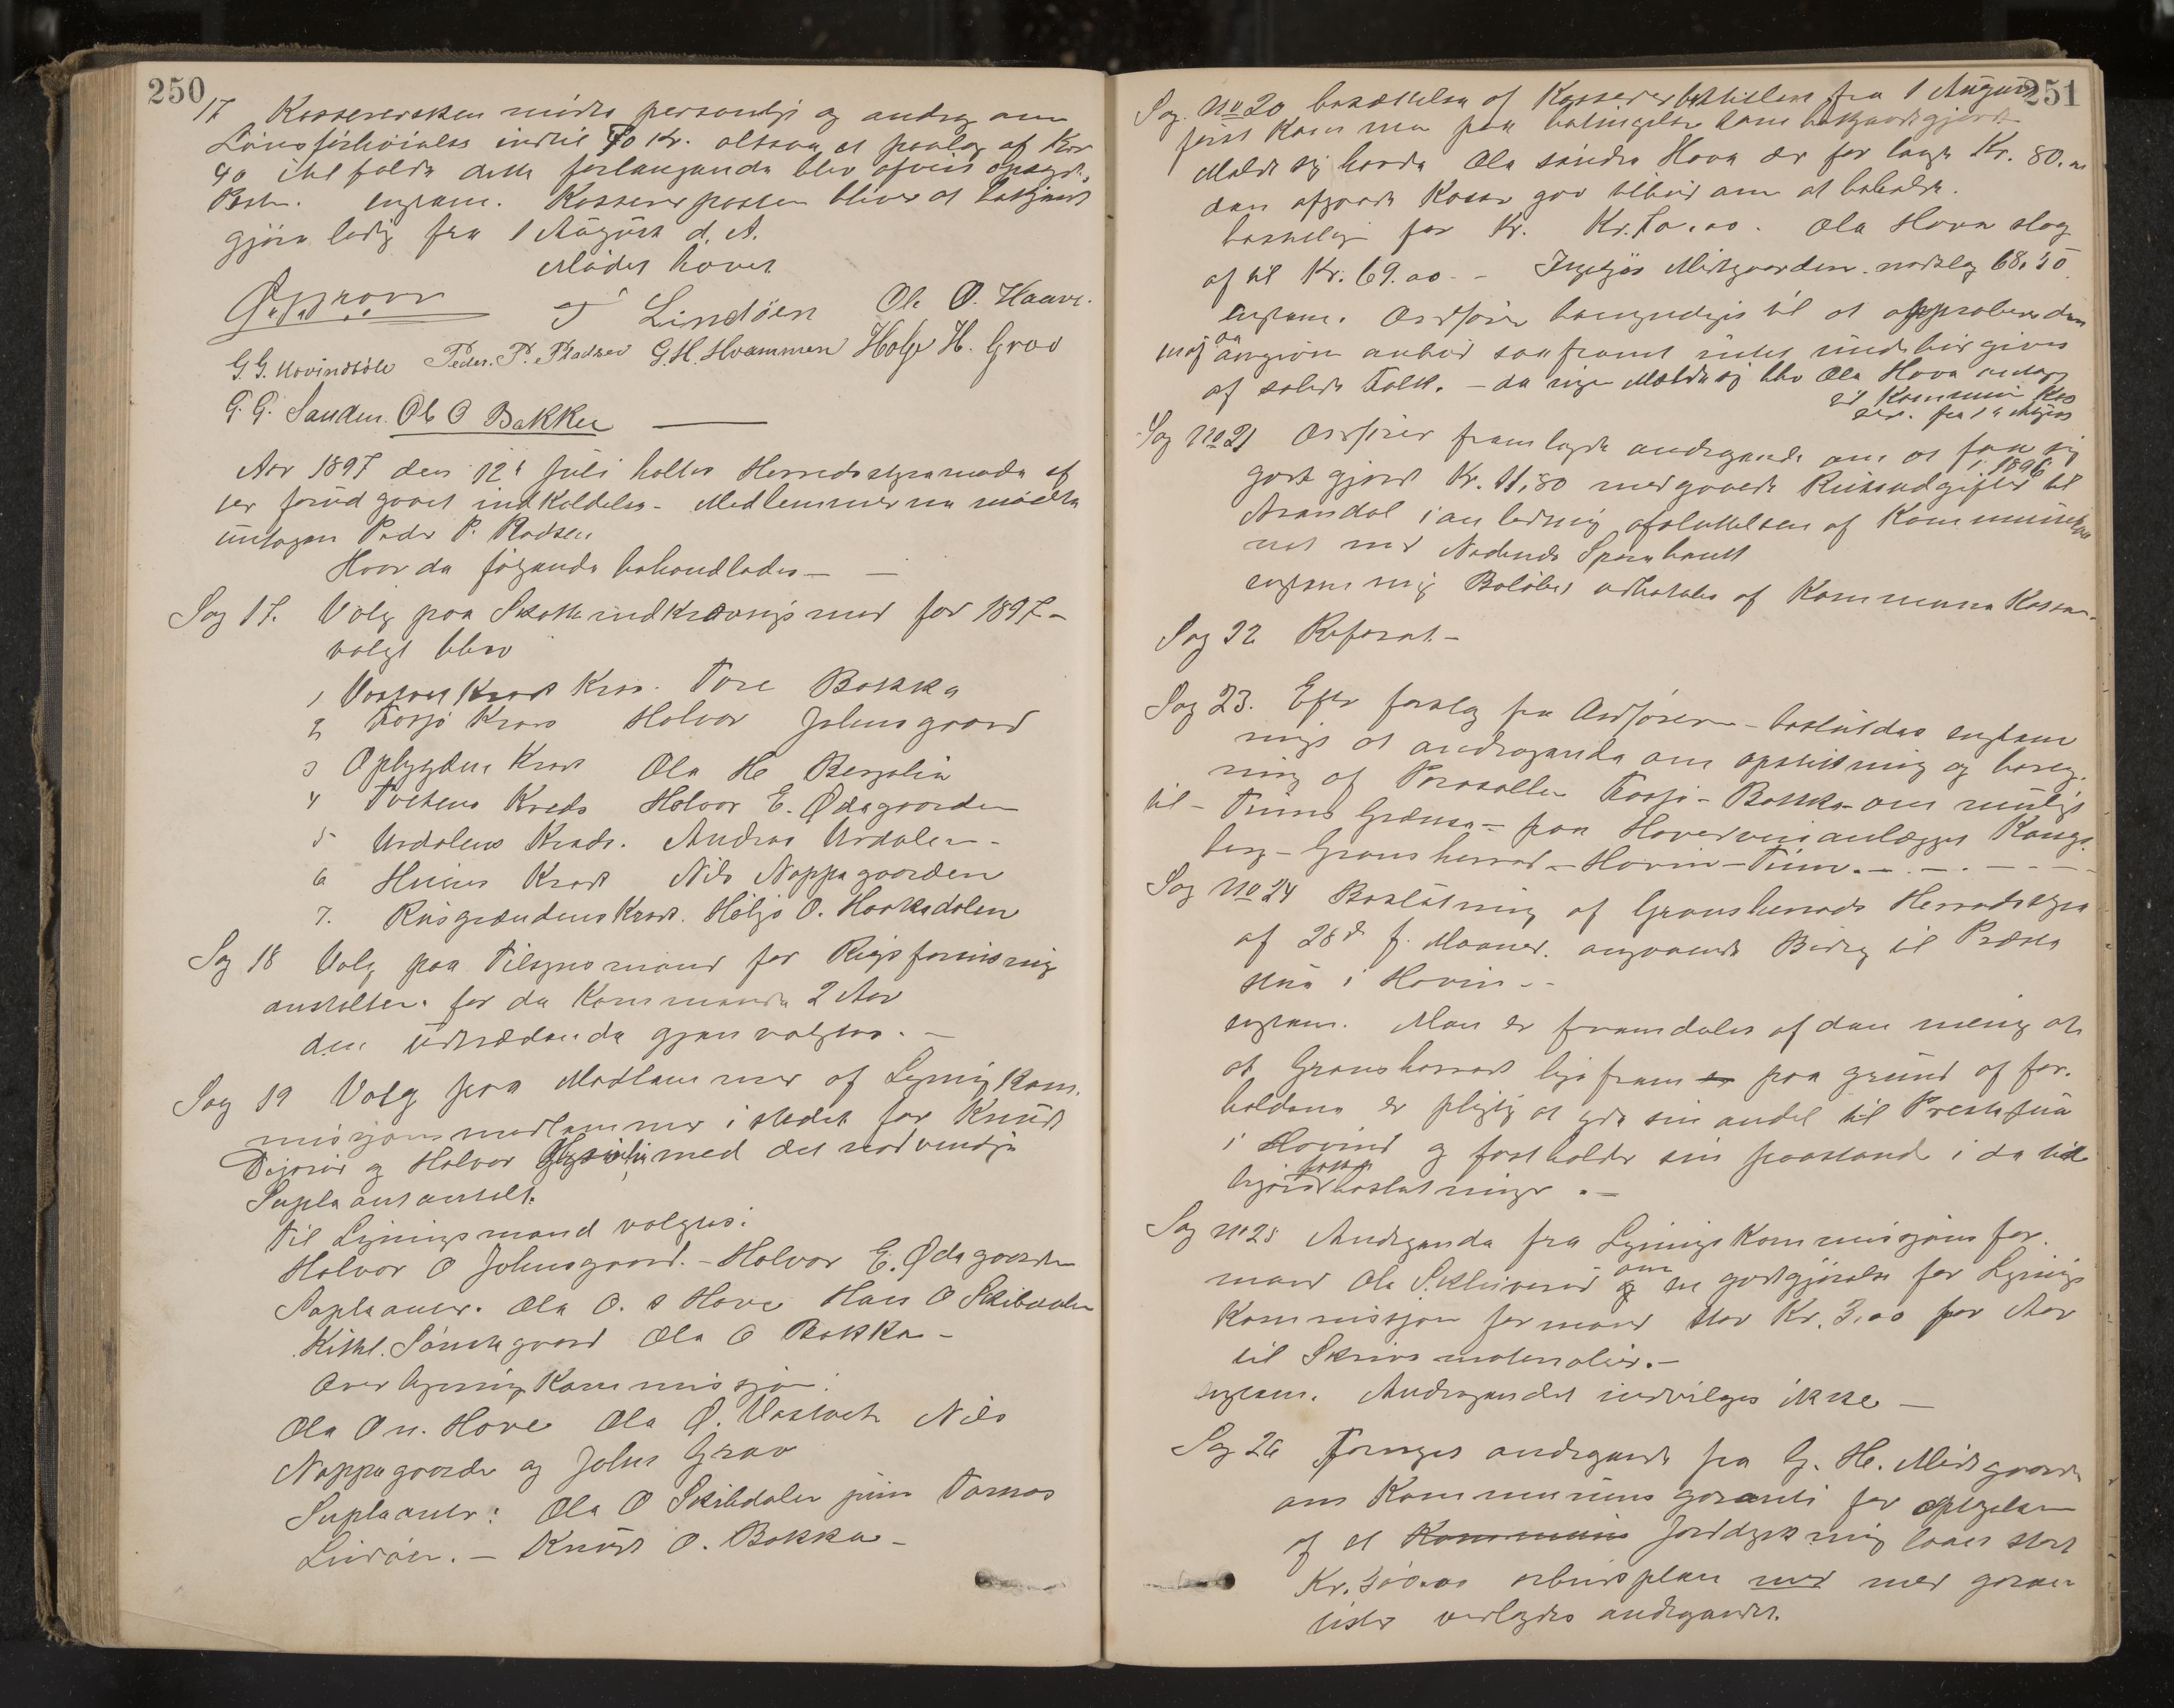 250
17 Kassereresken mødte personlig og androg om
Lønsforhøielse indtil 70 Kr. altsaa et paalæg af Kr.
40 ihl falde dette forlangende blev afvist opsagt.
Besl. enstem. Kasserer posten bliver at bekjent
gjøre ledig fra 1 August d. A.
Mødet hævet
Lindöen Ole O. Haave.
G. G. Hovindbøle Peder. P. Pladsen G. H. Hvammen Holje H. Grov
G. G. Sanden. Ole O Bakken
Aar 1897 den 12te Juli holtes Herredsstyremøde ef
ter forud gaaet indkaldelse - Medlemmerne mødte
untagen Peder P. Pladsen
Hvor da følgende behandledes —
Sag 17. Valg paa Skatteindkrævningsmænd for 1897 -
valgt blev
1 Kreds Tore Bakka
2 Fosjø Kreds Halvor Johnsgaard
3 Opbygdens Kreds Ola H. Berjalia
4 Tvetens Kreds Halvor E. Ødegaarden
5 Urdalens Kreds. Andreas Urdalen -
6 Husevs Kreds Nils Noppagaarden
7. Rusgrændens Kreds. Holje O. Haakedalen
Sag 18 Valg paa Tilsynsmænd for Rigsforsikring
anstalten. for de Kommende 2 Aar
den udtrædende gjenvalgtes. —
Sag 19 Valg paa Medlemmer af Ligningskom
missjonsmedlemmer i stedet for Knudt
og Halvor med det nødvendige
Suplaantantelt.
Til Ligningsmænd valgtes:
Halvor O Johnsgaard. - Halvor E. Ødegaarden
Suplaanter. Ola O. s Hove Hans O Skibdalen
Kittel. Sønstegaard Ola O Bakka -
Overligningskommissjon:
Ola O n. Hove Ola Ø. Nils
Noppagaarden og Johns Grav
Suplaanter: Ola O Skibdalen jun Tarnas
Lindöen. - Knudt O. Bakka -
251
Sag. No 20 besættelse af Kassererbestillen fra 1 August
først kom man paa betingelse som bekjentgjordt
Meldt sig havde Ola søndre Hova der for langte Kr. 80.00
den afgaaende Kasser gav tilbud om at beholde
bestilling for Kr. Kr. 70.00. Ola Hova slog
af til Kr. 69.00 - Ingebjør Midtgaarden. nedslog 68.50
enstem. Ordfører bemyndiges til at approbere den
angivne anbud saafremt intet underbud gives
af solide Folk. - da ingen Meldte sig blev Ola Hova antagt
til Kommune Kas
serer. fra 1ste August
Sag No 21 Ordfører fremlagde andragende om at faa sig
godtgjort Kr. 11,80 medgaaede Reiseudgifter i 1896 til
Arendal i anledning afsluttelsen af Kommunelaa
net med Nedenes Sparebank
enstemmig Beløbet udbetales af Kommune Kassen.
Sag 22 Referat. -
Sag 23. Efter forslag fra Ordføreren - besluttedes enstem
mige at andragende om opstikning og bereg.
ning af Parcellen Fosjø - Bakka om muligt
til - Tinns Grænse - paa Hovedveianlægget Kongs.
berg - Gransherred - Hovin - Tinn. —
Sag No 24 Beslutning af Gransherreds Herredsstyre
af 28de f. Maaned. angaaende Bidrag til Præste
stue i Hovin -
enstem. Man er fremdeles af den mening at
at Gransherred ligefrem paa grund af for.
holdene er pligtig at yde sin andel til Prestestue
i Hovind og fastholder sin paastand i de tid
ligere fattede beslutninger. —
Sag No 25 Andragende fra Ligningskommissjons for.
mand Ola Skliverud om en godtgjørelse for Lignings
Kommissjon formand stor Kr. 3.00 per Aar
til Skrivematerialier. -
enstem. Andragendet indvilges ikke —
Sag 26 Foreliges andragende fra G. H. Midtgaarden
om Kommunens garanti for optagelsen
af et Kommune Jorddyrkning laaen stort
Kr. 300.00 arbeidsplan med med garan
tister vedlagdes andragendet.